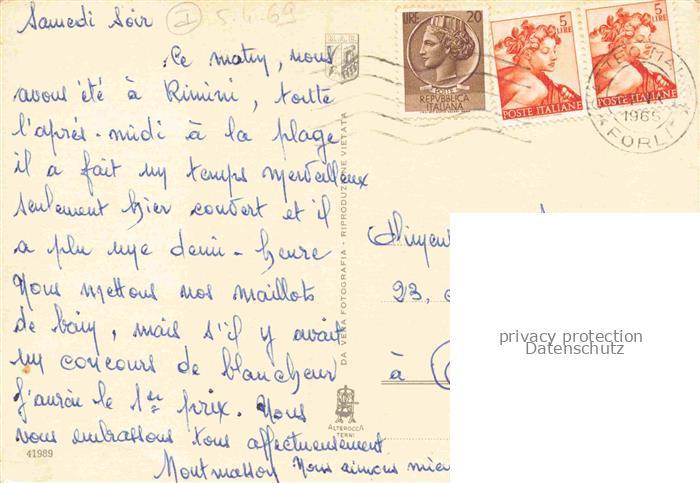 Samedi Soir
I 5.4.69
Ce matin, nous
avons été à Rimini, toute
l'après-midi à la plage
il a fait un temps merveilleux
seulement hier couvert et il
a plu une demi-heure
Nous mettons nos maillots
de bain, mais s'il y avait
un concours de blancheur
J'aurai le 1er prix. Nous
vous embrassons tous affectueusement
Montmasson Nous aimons
41989
DA VERA FOTOGRAFIA - RIPRODUZIONE VIETATA
ALTEROCCA
TERNI
LIRE 20
POSTE
REPVBBLICA
ITALIANA
5
LIRE
POSTE ITALIANE
5
LIRE
POSTE ITALIANE
1966
FORLI
23,
à
privacy protection
Datenschutz